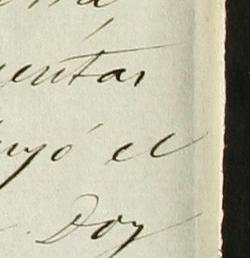 entas
uyó el
Doy